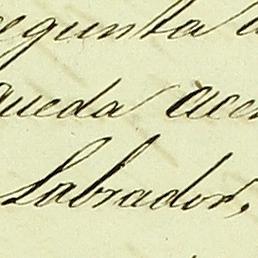 regunta a
queda acer
Labrador,